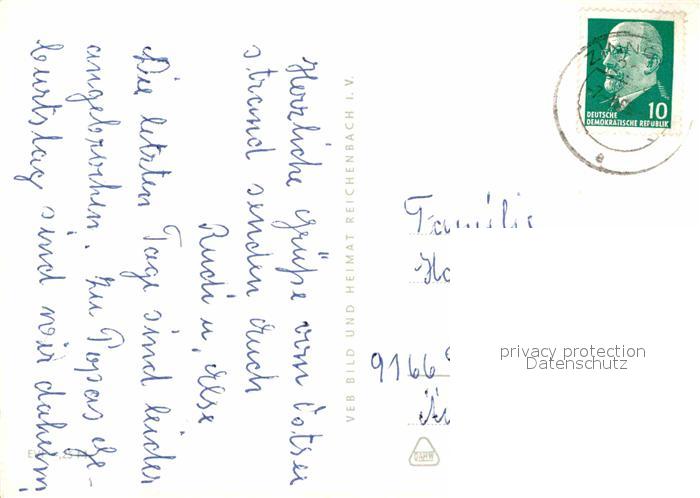 Herzliche Grüße vom Ostsee
strand senden Euch
Rudi u. Ilse
Die letzten Tage sind leider
angebrochen. Zu Papas Ge-
burtstag sind wir daheim!
VEB BILD UND HEIMAT REICHENBACH I. V.
10
DEUTSCHE
DEMOKRATISCHE REPUBLIK
Familie
9166
privacy protection
Datenschutz